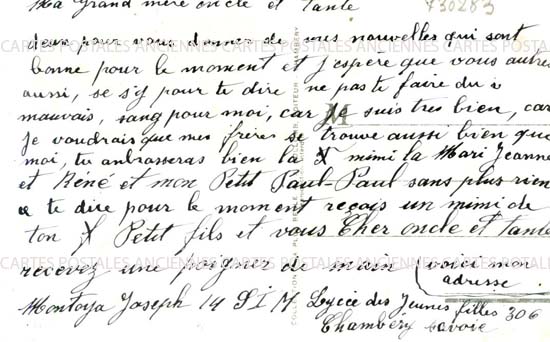 Ma grand mère oncle et tante
deux pour vous donner de mes nouvelles qui sont
bonne pour le moment et j'espère que vous autres
aussi, se s'y pour te dire ne pas te faire du
mauvais, sang pour moi, car je suis très bien, car
Je voudrais que mes frères se trouve aussi bien que
moi, tu anbrasseras bien la mimi la Mari Jeanne
et Réné et mon Petit Paul-Paul sans plus rien
a te dire pour le moment reçois un mimi de
ton Petit fils et vous Cher oncle et tante
recevez une poigner de main (voici mon
adresse
Montoya Joseph 14 S I M Lycée des Jeunes filles 306
Chambéry savoie
730283
CARTES POSTALES ANCIENNES CARTES POSTALES ANCIENNES CARTES POSTALES